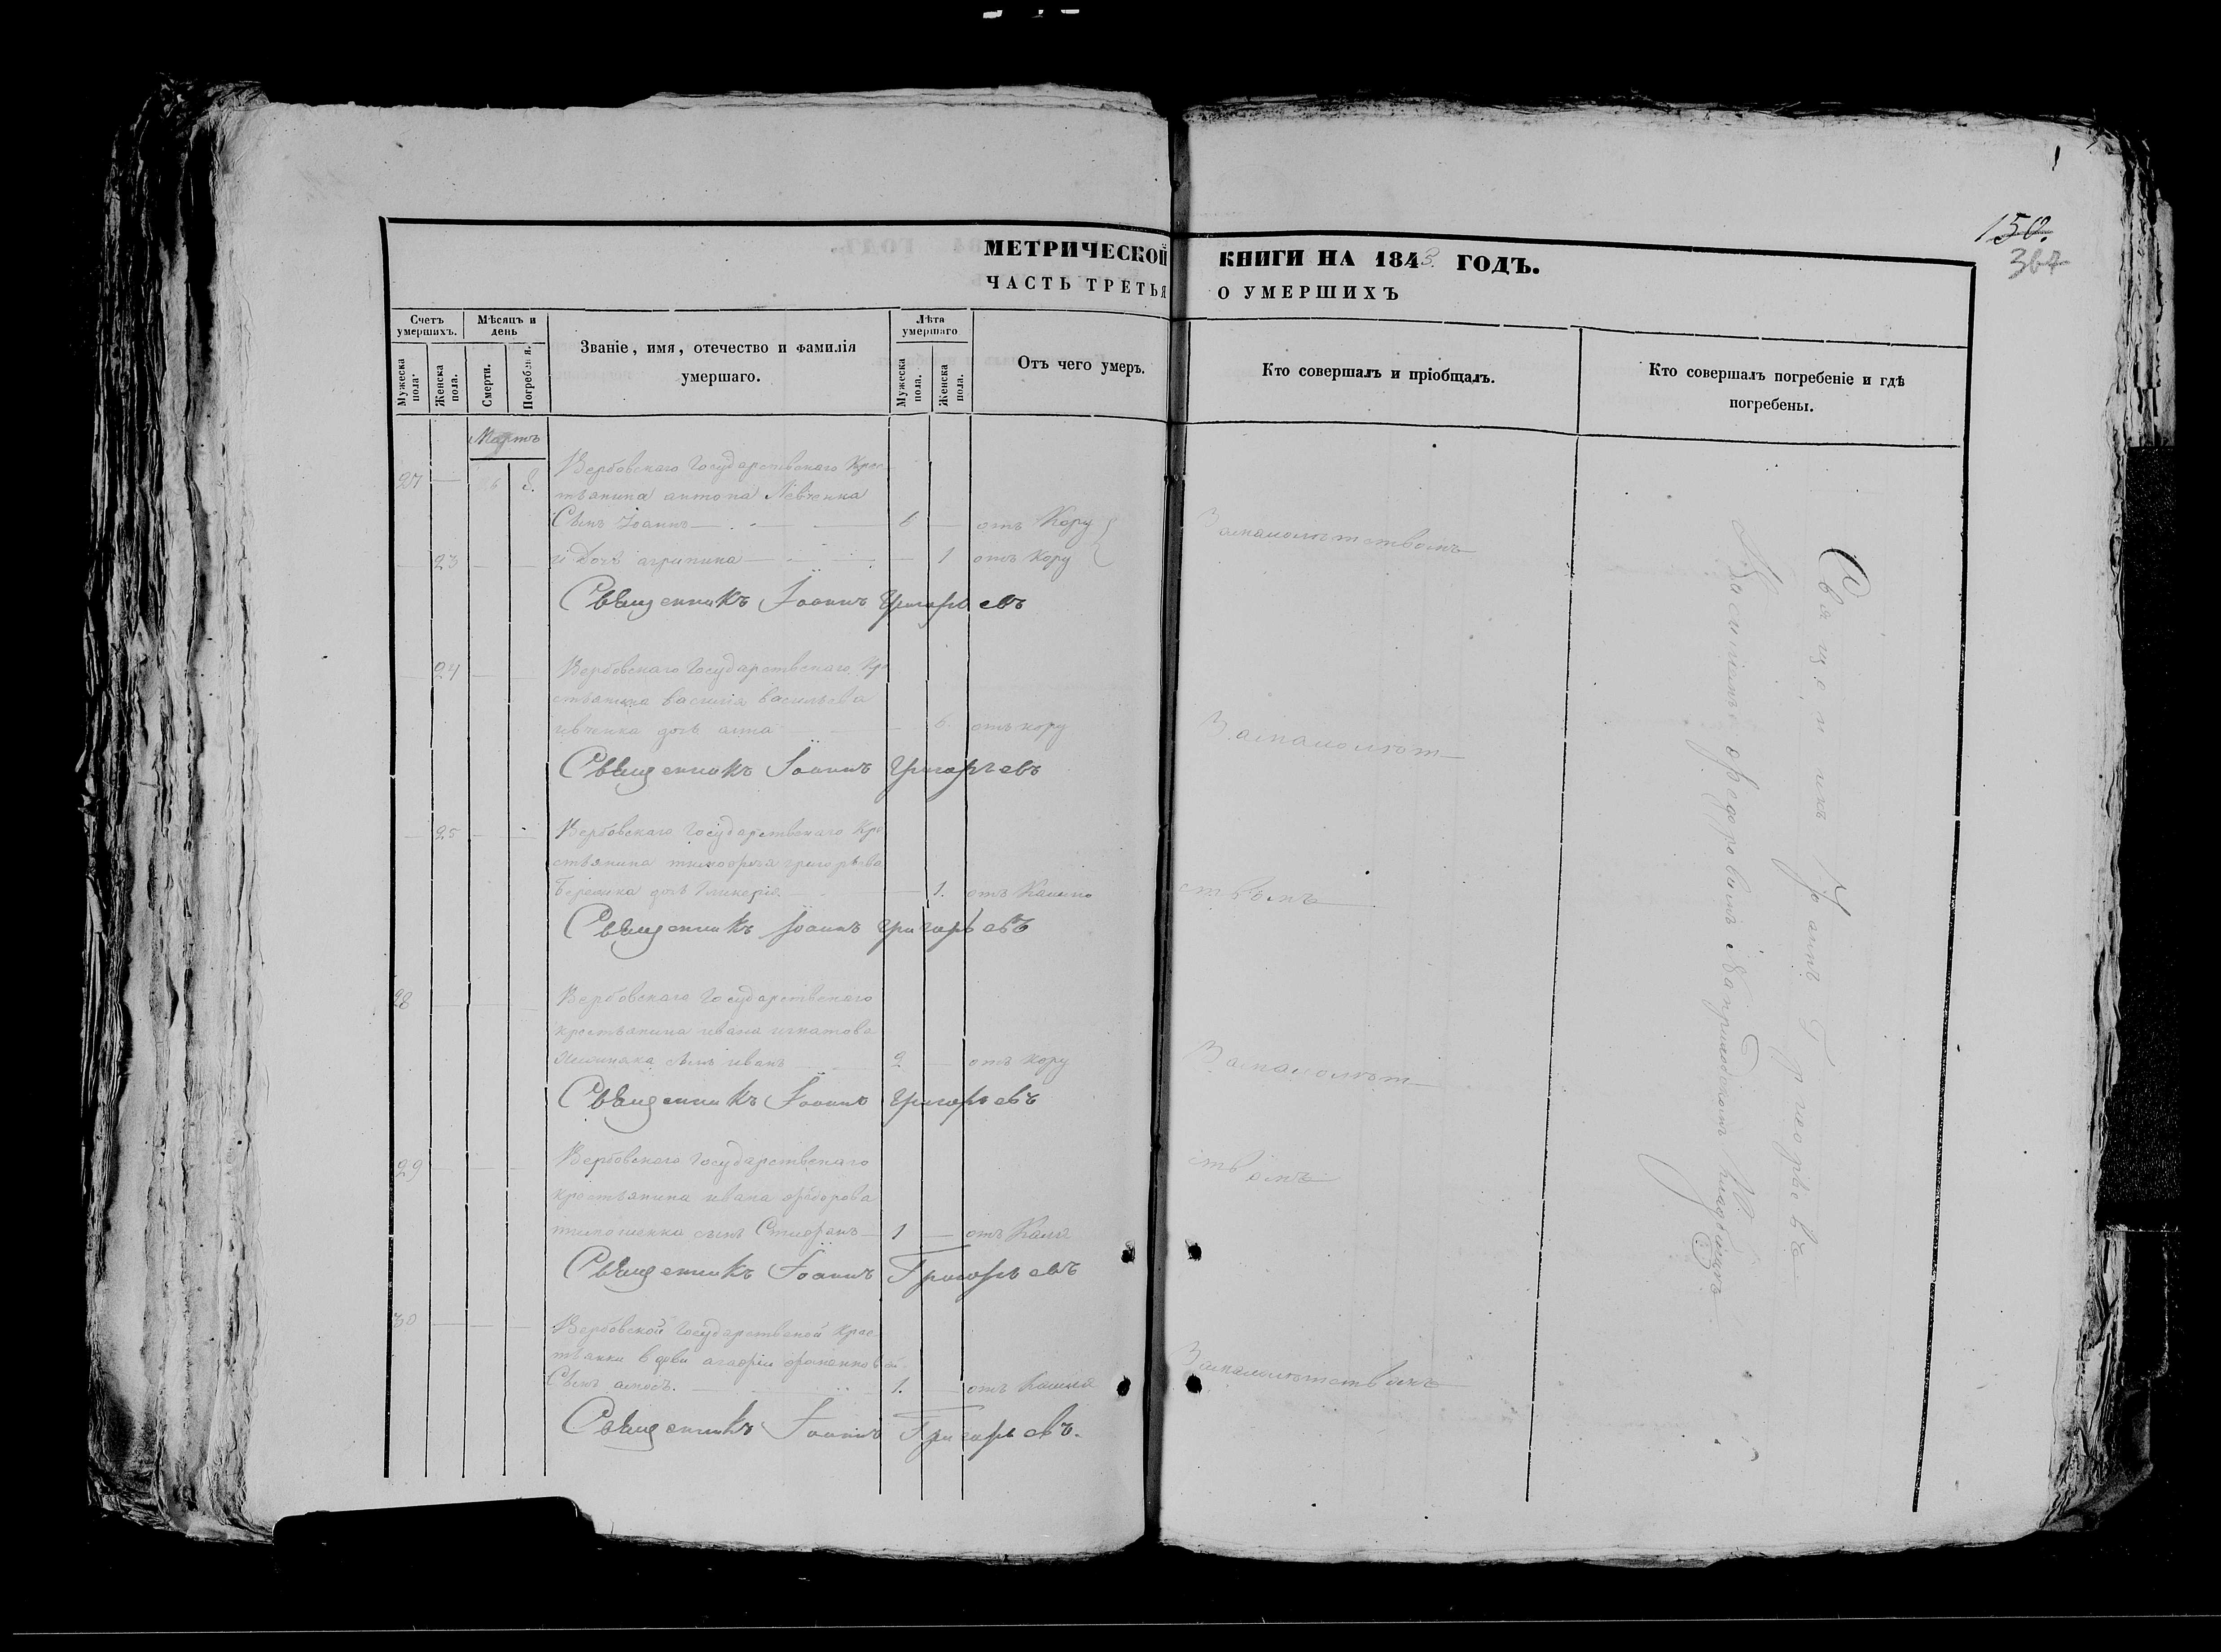 150.
367
МЕТРИЧЕСКОЙ КНИГИ НА 1843 ГОДЪ.
ЧАСТЬ ТРЕТЬЯ О УМЕРШИХЪ
Счетъ умершихъ.
Мужеска пола.
Женска пола.
Мѣсяцъ и день
Смерти.
Погребенія.
Званіе, имя, отечество и фамилія
умершаго.
Лѣта умершаго
Мужеска пола.
Женска пола.
Отъ чего умеръ.
Кто совершалъ и пріобщалъ.
Кто совершалъ погребеніе и гдѣ
погребены.
Мартъ
27 — 6 8. Вербовскаго Государственаго Крес
тьянина антона Левченка
Сынъ Іоаннъ — 6 — отъ Кору
23 и дочь агрипина — 1 отъ Кору
Замалолѣтствомъ
Священникъ Іоаннъ Григорьевъ
24 Вербовскаго Государственаго Кре
стьянина василія васильева
дочь анна — 6 отъ кору
Замалолѣт
Священникъ Іоаннъ Григорьевъ
25 Вербовскаго Государственаго Кре
стьянина григорьева
дочь Гликерія — 1. отъ Кашлю
ствомъ
Священникъ Іоаннъ Григорьевъ
28 Вербовскаго Государственаго
крестьянина ивана игнатова
сынъ иванъ 2 — отъ кору
Замалолѣт
Священникъ Іоаннъ Григорьевъ
29 Вербовскаго Государственаго
крестьянина ивана федорова
сынъ Стефанъ — 1 — отъ Кашля
ствомъ
Священникъ Іоаннъ Григорьевъ
30 Вербовской Государственой Крес
тьянки вдови агафіи
Сынъ амосъ. 1. — отъ Кашля
Замалолѣтствомъ
Священникъ Іоаннъ Григорьевъ.
Священникъ Іоаннъ Григорьевъ